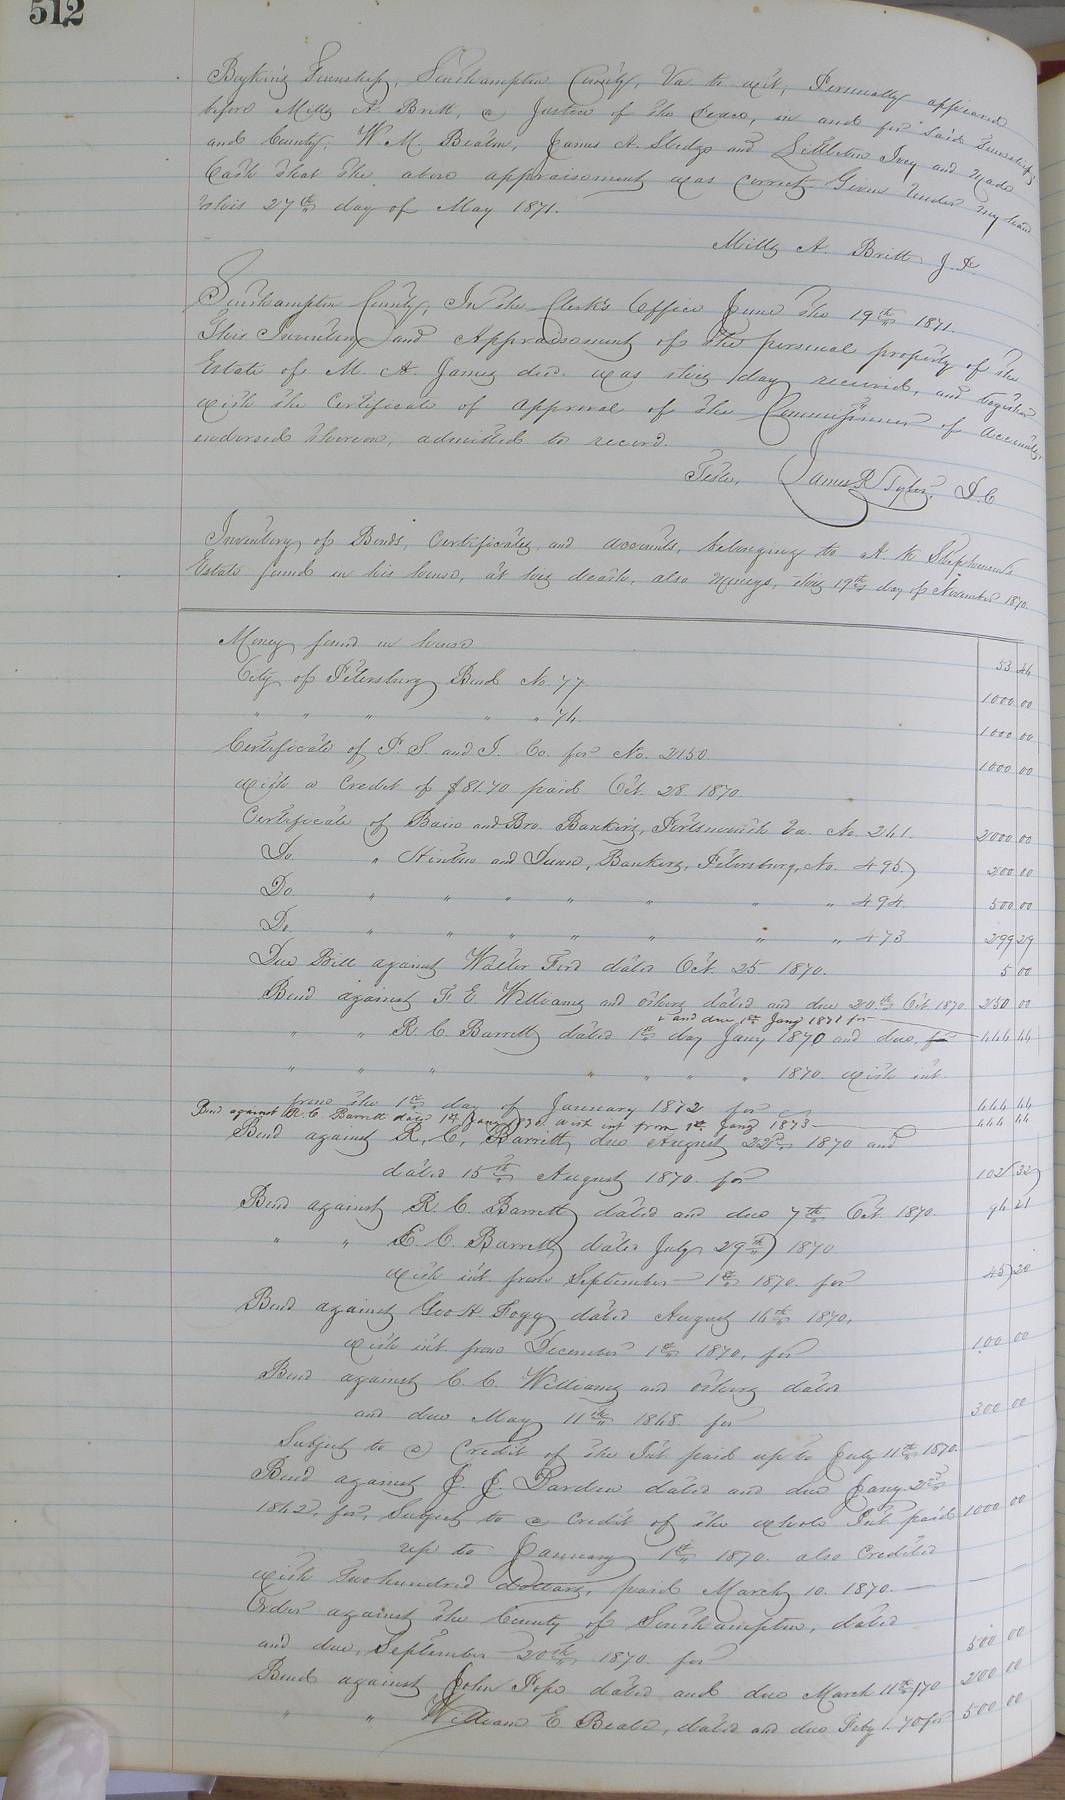 512
Boykins Township, Southampton County, Va to wit, Personally appeared
before Mills A. Britt, a Justice of the Peace, in and for said Township
and County, W. M. Beaton, James A. Sledge and Littleton Ivey and made
Oath that the above appraisement was correct Given under my hand
this 27th day of May 1871.
Mills A. Britt J. P.
Southampton County, In the Clerk's Office June the 19th 1871.
This Inventory and Appraisement of the personal property of the
Estate of M. A. James dec. was this day received, and together
with the Certificate of approval of the Commissioner of Accounts
endorsed thereon, admitted to record.
Teste, James R Tyler, D. C
Inventory of Bonds, Certificates, and accounts, belonging to A. K Stephenson's
Estate found in his house, at his death, also moneys, this 19th day of November 1870.
Money found in house 53 46
City of Petersburg Bond No. 77 1000 00
" " " " " 76. 1000 00
Certificate of P. S. and I. Co. for No. 2150 1000 00
with a Credit of $81.70 paid Oct. 28 1870.
Certificate of Bain and Bro. Bankers, Portsmouth Va. No. 261. 2000 00
Do. " Hinton and Dunn, Bankers, Petersburg, No. 495. 200 00
Do. " " " " " " " 494. 500 00
Do. " " " " " " " 473 299 29
Due Bill against Walter Ford dated Oct. 25 1870. 5 00
Bond against F. E. Williams and others dated and due 20th Oct 1870 250 00
& and due 1st Jany 1871 for
" " R. C. Barrett dated 1st day Jany 1870 and due, for 444 44
" " " " " " " 1870. with int.
from the 1st day of January 1872 for 444 44
Bond against R. C. Barrett dated 1st Jany 1870 with int from 1st Jany 1873 444 44
Bond against R. C. Barrett, due August 22d 1870 and
dated 15th August 1870. for 102 32
Bond against R. C. Barrett dated and due 7th Oct 1870. 96 21
" " E. C. Barrett dated July 29th 1870
with int. from September 1st 1870. for 45 20
Bond against Geo H. Fogg dated August 16th 1870,
with int from December 1st 1870, for 100 00
Bond against C. C. Williams and others dated
and due May 11th 1868. for 300 00
Subject to a Credit of the Int. paid up to July 11th 1870.
Bond against J. J. Darden dated and due Jany 2nd
1862, for, Subject to a credit of the whole Int. paid 1000 00
up to January 1st 1870. also Credited
with two hundred dollars, paid March 10. 1870.
Order against the County of Southampton, dated
and due, September 20th 1870. for 500 00
Bond against John Pope dated and due March 11th /70 200 00
" " William E Beale, dated and due Feby 1. 70 for 500 00